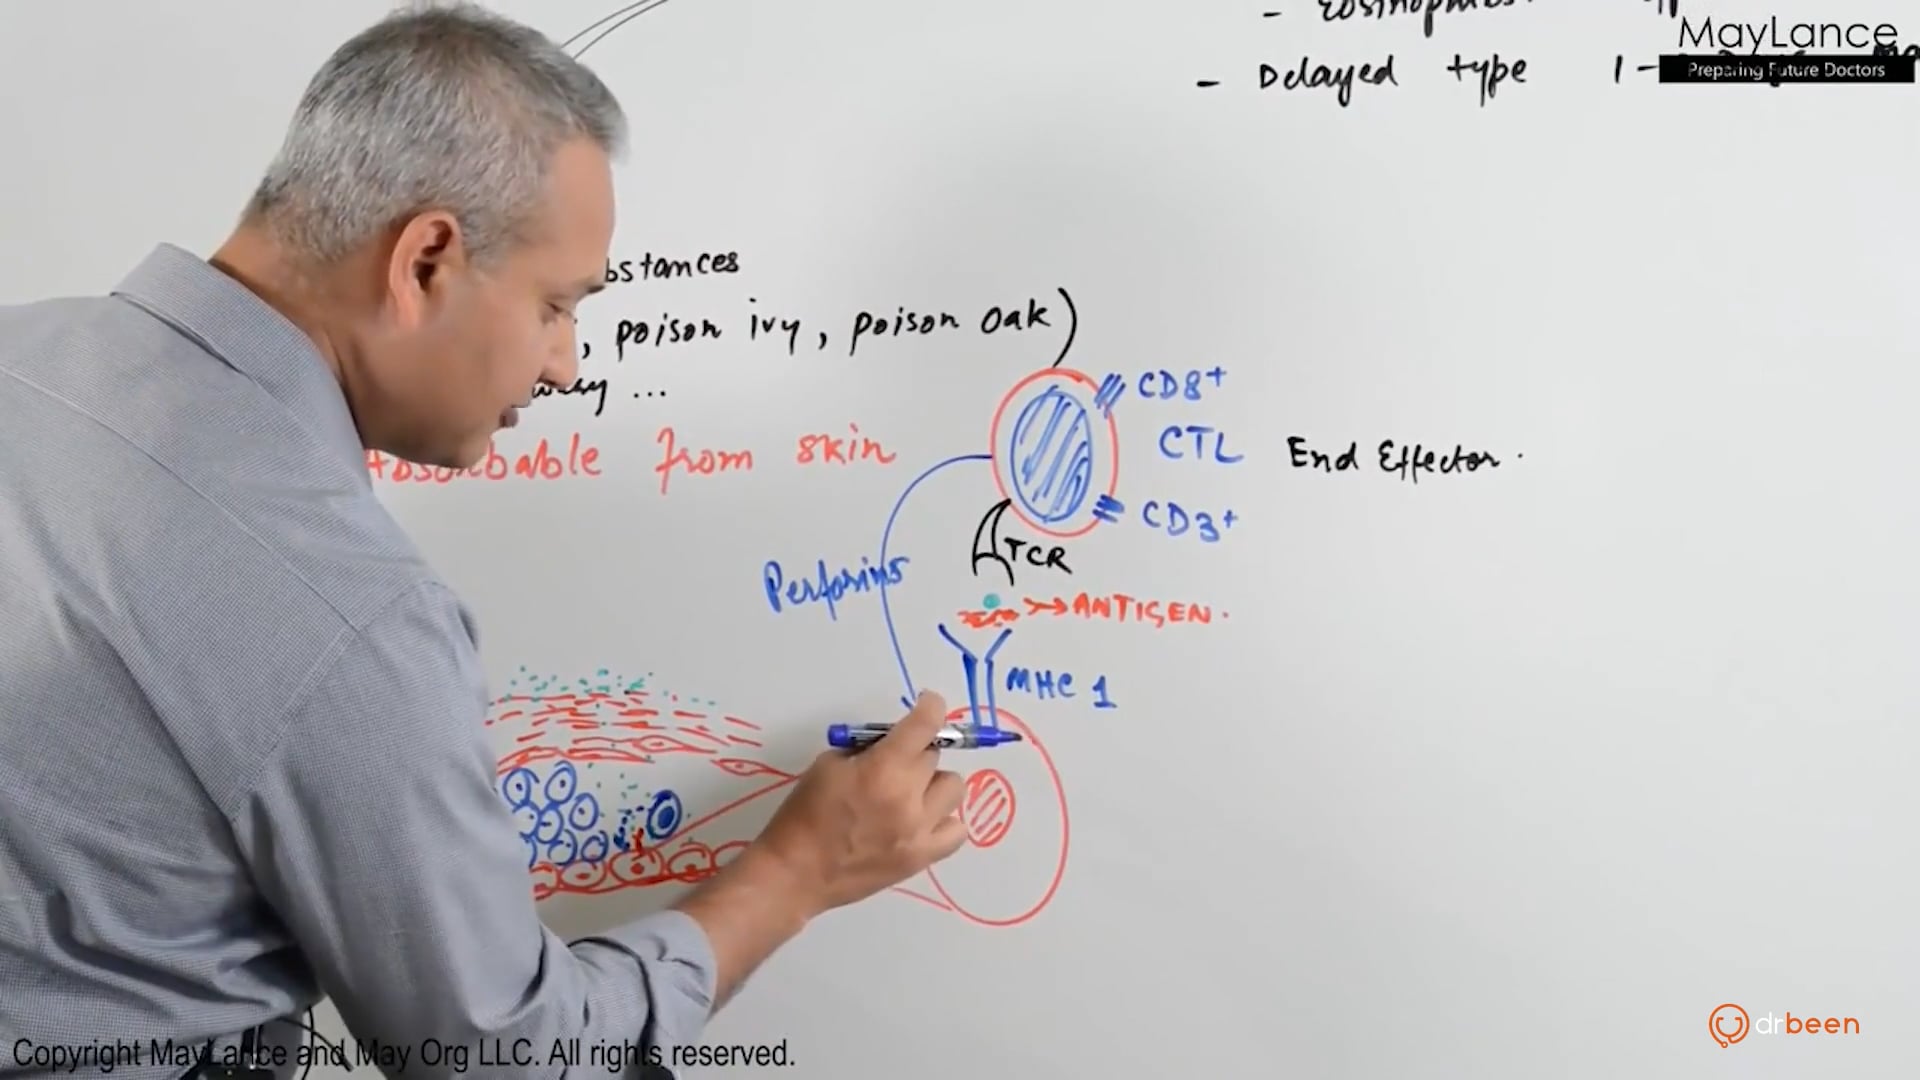 - Eosinophils.
MayLance
Preparing Future Doctors
- Delayed type 1-
bstances
, poison ivy, poison oak)
...
Absorbable from skin
CD8+
CTL
End Effector.
CD3+
TCR
Perforins
ANTIGEN.
MHC 1
drbeen
Copyright MayLance and May Org LLC. All rights reserved.